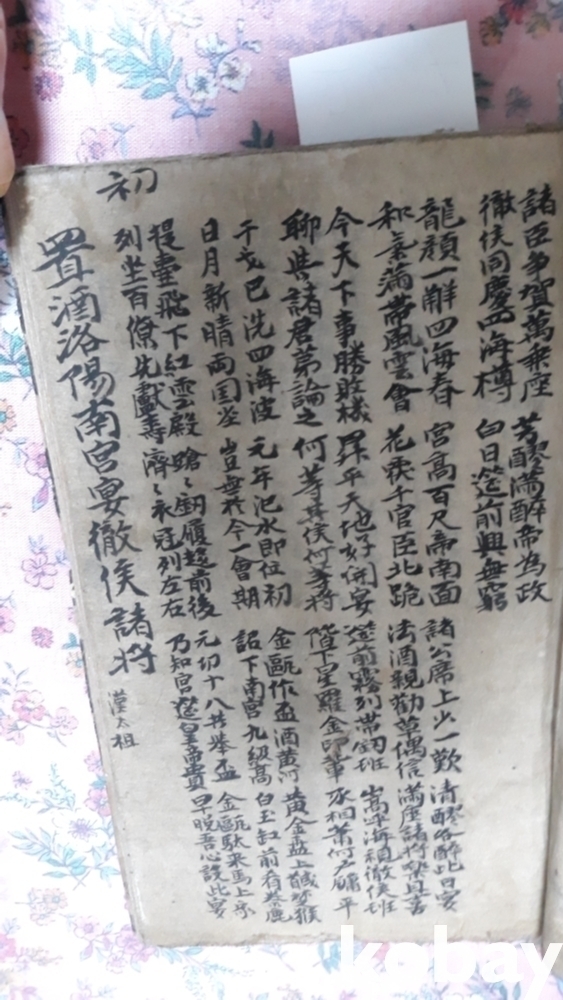 諸臣爭賀萬乘座 芳醪滿醉帝為政
徹侯同慶四海樽 白日筵前興無窮
龍顔一解四海春 宮高百尺帝南面 諸公席上少一歎 清醪醉此日宴
和氣滿帶風雲會 花 千官臣北跪 法酒親勸草偶信 滿座諸將樂且喜
今天下事勝敗樣 昇平天地好開宴 筵前霧列帶劒班 嵩呼海頌徹侯班
聊與諸君第論之 何等其侯何等將 階下星羅金印輩 丞相蕭何戶牖平
干戈已洗四海波 元年汜水即位初 金甌作盃酒黃河 黃金盆上馘楚猴
日月新晴兩國 豈無於今一會期 詔下南宮九級高 白玉缸前有秦鹿
提壺飛下紅雲殿 蹌〻劒履趨前後 元功十八共舉盃 金甌馱來馬上
列坐百僚先獻壽 濟〻衣冠列左右 乃知宮筵皇帝貴 曰脫吾心設此宴
初
置酒洛陽南宮宴徹侯諸將 漢太祖
kobay